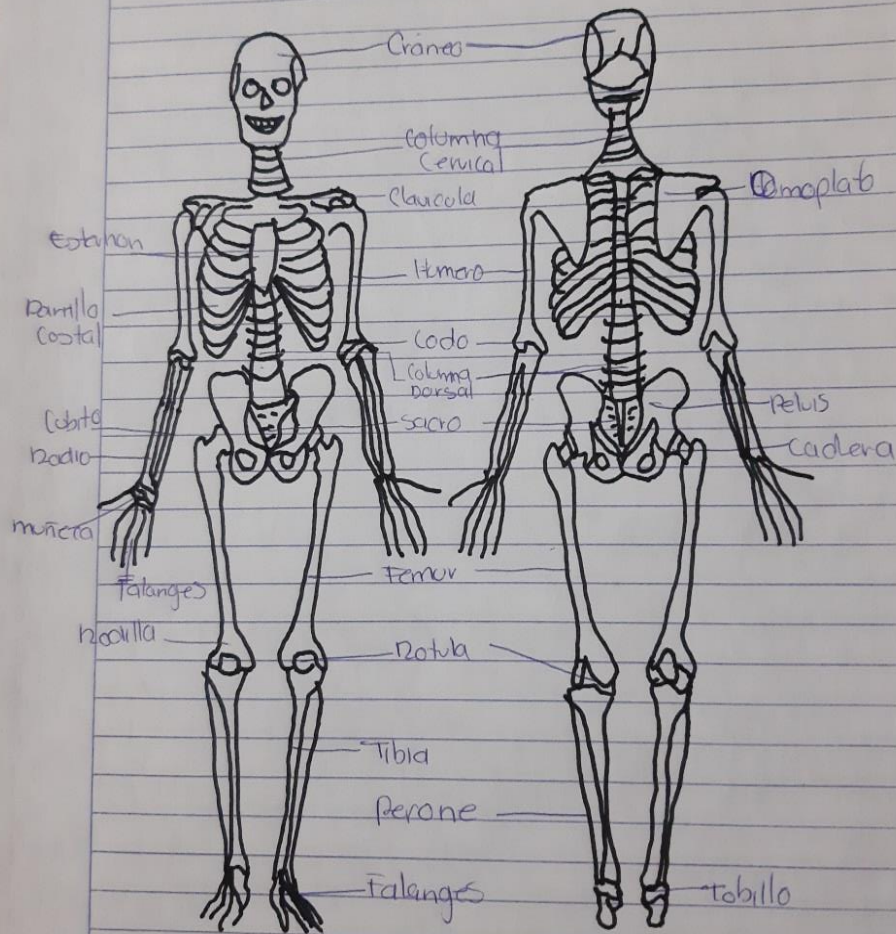 Cráneo
Columna
Cervical
Clavicula
Omoplato
Esternon
Humero
Parrilla
Costal
Codo
Columna
Dorsal
Pelvis
Cubito
Sacro
Cadera
Radio
muñeca
Falanges
Femur
Rodilla
Rotula
Tibia
Perone
Falanges
Tobillo